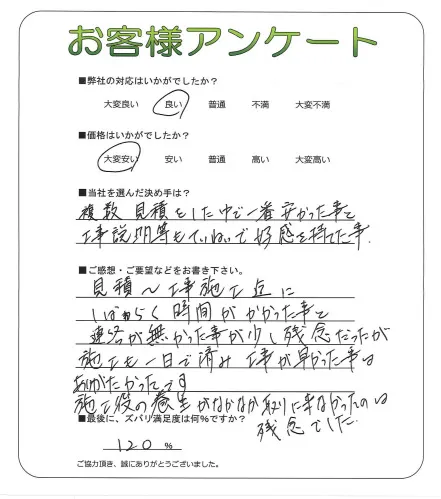 お客様アンケート
■弊社の対応はいかがでしたか?
大変良い 良い 普通 不満 大変不満
■価格はいかがでしたか?
大変安い 安い 普通 高い 大変高い
■当社を選んだ決め手は?
複数見積をした中で一番安かった事と
工事説明等もていねいで好感を持てた事.
■ご感想・ご要望などをお書き下さい。
見積〜工事施工迄に
しばらく時間がかかった事と
連絡が無かった事が少し残念だったが
施工も一日で済み工事が早かった事は
ありがたかったです
施工後の養生がなかなか取りに来なかったのは
残念でした.
■最後に、ズバリ満足度は何%ですか?
120 %
ご協力頂き、誠にありがとうございました。